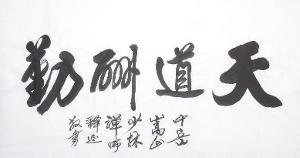 天道酬勤
中岳
嵩山
少林
禅师
释延